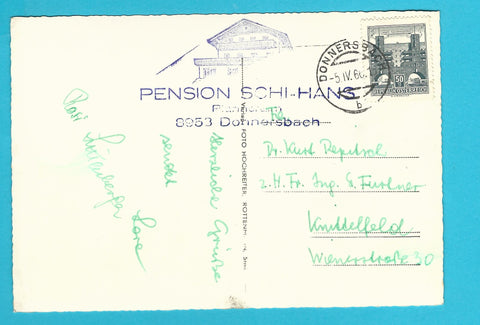 PENSION SCHI-HANS
8953 Donnersbach
DONNERSBACH
-5.IV.66
b
50
REPUBLIK ÖSTERREICH
Herzliche Grüße
sendet
Lore
Verlag: FOTO HOCHREITER, ROTTENMANN,
Dr. Kurt
z. H. Fr. Ing. S.
Knittelfeld
Wienerstraße 30